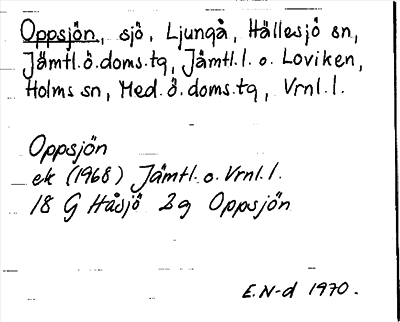 Oppsjön, sjö, Ljungå, Hällesjö sn,
Jämtl.ö.doms.tg, Jämtl.l. o. Loviken,
Holms sn, Med.ö.doms.tg, Vrnl.l.
Oppsjön
ek (1968) Jämtl. o. Vrnl.l.
18 G Håsjö 2g Oppsjön
E.N-d 1970.